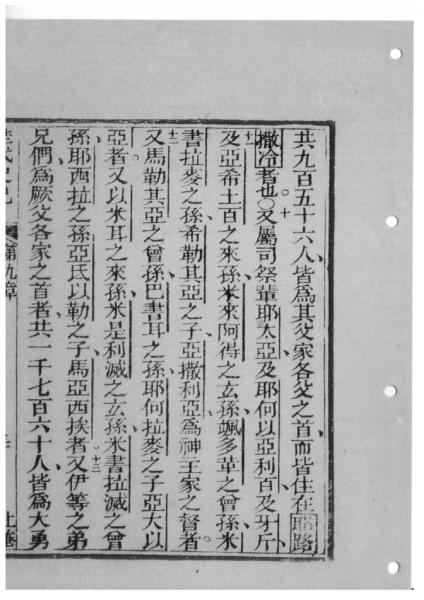 共九百五十六人皆爲其父家各父之首而皆住在耶路
撒冷者也〇十又屬司祭輩耶太亞及耶何以亞利百及牙斤
十一及亞希土百之來孫米來阿得之玄孫颯多革之曾孫米
書拉麥之孫希勒其亞之子亞撒利亞爲神王家之督者
十二又馬勒其亞之曾孫巴書耳之孫耶何拉麥之子亞大以
亞者又以米耳之來孫米是利滅之玄孫米書拉滅之曾
孫耶西拉之孫亞氐以勒之子馬亞西挨者十三又伊等之弟
兄們爲厥父各家之首者共一千七百六十人皆爲大勇